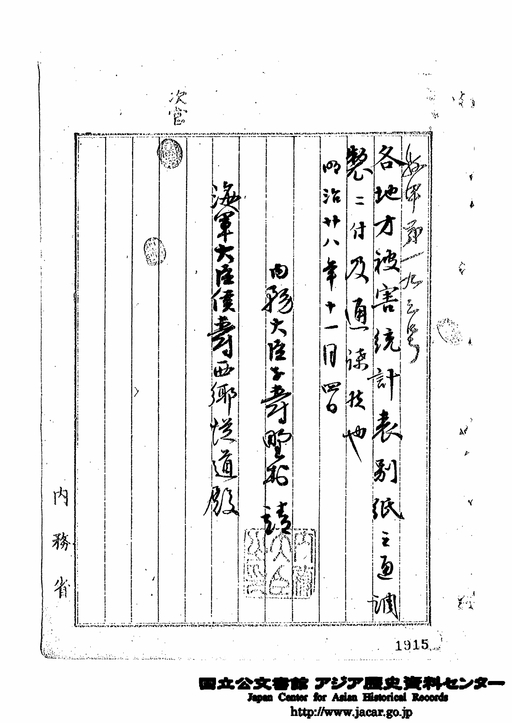 次官
各地方被害統計表別紙之通調
製ニ付及通牒候也
明治廿八年十一月四日
内務大臣子爵野村靖
海軍大臣侯爵西郷従道殿
内務省
1915
国立公文書館 アジア歴史資料センター
Japan Center for Asian Historical Records
http://www.jacar.go.jp